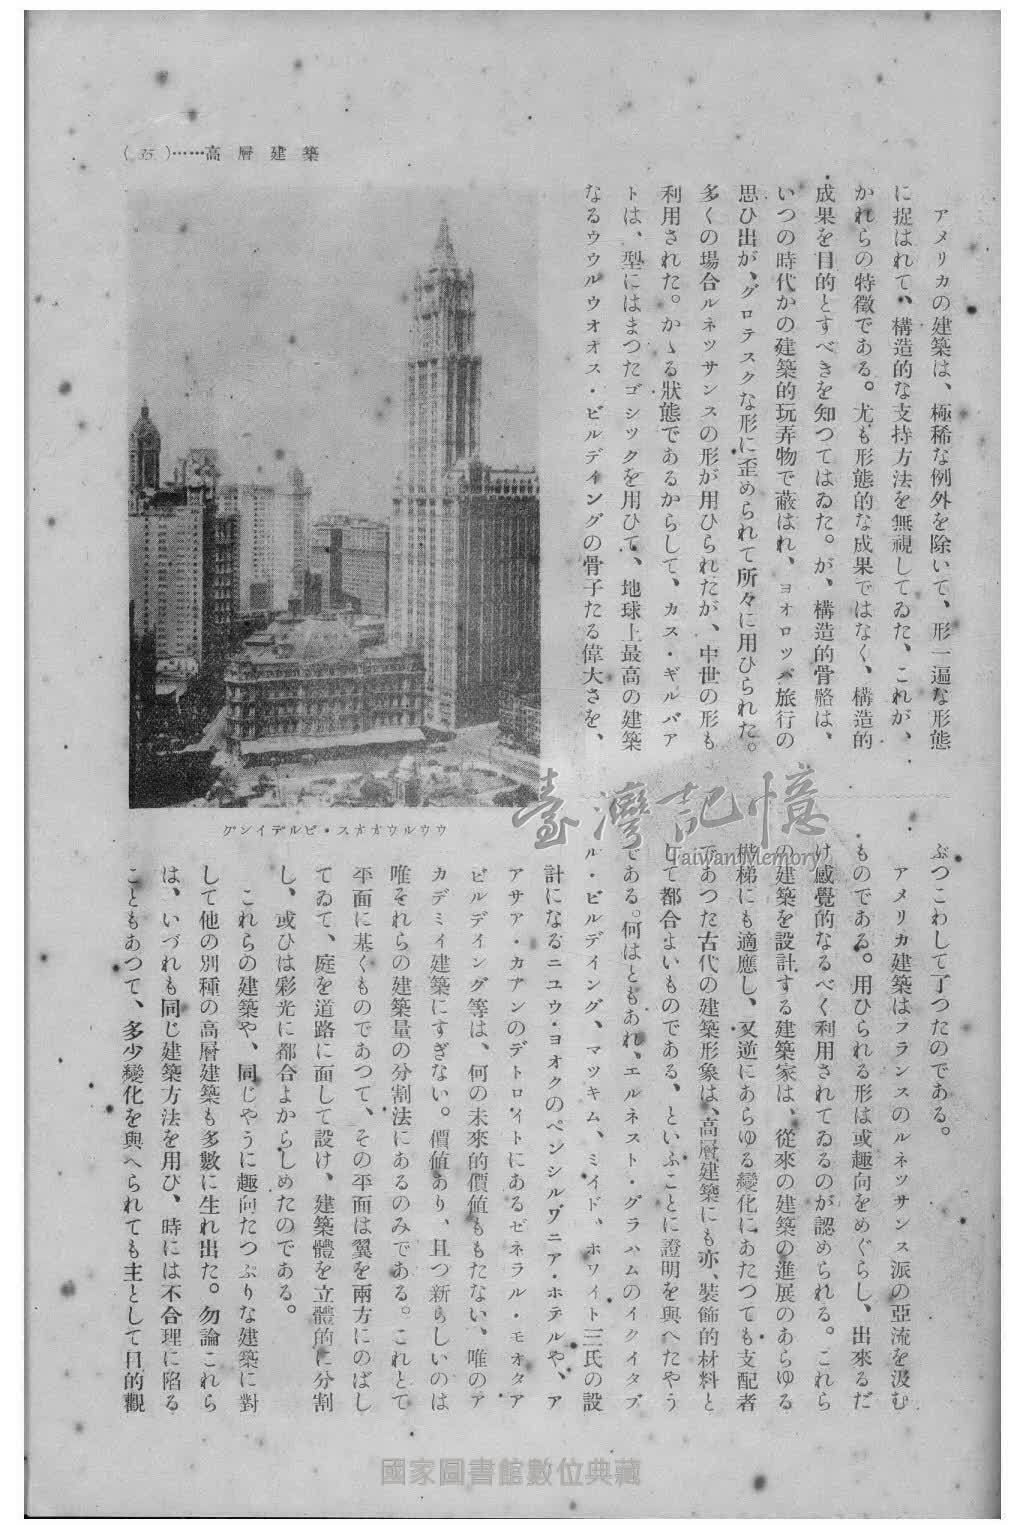 ( 35 )……高層建築
アメリカの建築は、極稀な例外を除いて、形一遍な形態
に捉はれて、構造的な支持方法を無視してゐた、これが、
かれらの特徴である。尤も形態的な成果ではなく、構造的
成果を目的とすべきを知つてはゐた。が、構造的骨骼は、
いつの時代かの建築的玩弄物で蔽はれ、ヨオロツパ旅行の
思ひ出が、グロテスクな形に歪められて所々に用ひられた。
多くの場合ルネツサンスの形が用ひられたが、中世の形も
利用された。かゝる狀態であるからして、カス・ギルバア
トは、型にはまつたゴシツクを用ひて、地球上最高の建築
なるウウルウオオス・ビルデイングの骨子たる偉大さを、
ウウルウオオス・ビルデイング
ぶつこわして了つたのである。
アメリカ建築はフランスのルネツサンス派の亞流を汲む
ものである。用ひられる形は或趣向をめぐらし、出來るだ
け感覺的なるべく利用されてゐるのが認められる。これら
の建築を設計する建築家は、從來の建築の進展のあらゆる
階梯にも適應し、又逆にあらゆる變化にあたつても支配者
であつた古代の建築形象は、高層建築にも亦、裝飾的材料と
して都合よいものである、といふことに證明を與へたやう
である。何はともあれ、エルネスト・グラハムのイクイタブ
ル・ビルデイング、マツキム、ミイド、ホワイト三氏の設
計になるニユウ・ヨオクのペンシルワニア・ホテルや、ア
アサア・カアンのデトロイトにあるゼネラル・モオタア
ビルデイング等は、何の未來的價値ももたない、唯のア
カデミイ建築にすぎない。價値あり、且つ新らしいのは
唯それらの建築量の分割法にあるのみである。これとて
平面に基くものであつて、その平面は翼を兩方にのばし
てゐて、庭を道路に面して設け、建築體を立體的に分割
し、或ひは彩光に都合よからしめたのである。
これらの建築や、同じやうに趣向たつぷりな建築に對
して他の別種の高層建築も多數に生れ出た。勿論これら
は、いづれも同じ建築方法を用び、時には不合理に陷る
こともあつて、多少變化を與へられても主として目的觀
臺灣記憶
Taiwan Memory
國家圖書館數位典藏